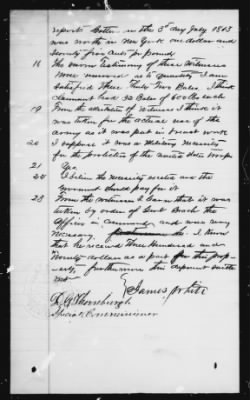 reports Cotton in the 3rd day July 1865
was worth in New York one dollar and
Seventy five Cents pr pound
18 The sworn Testimony of these witnesses
now removed as to quantity I am
Satisfied these thirty two Bales. I think
Claimant had 32 Bales of 600 lbs each
19 From the testimony of witnesses I think it
was taken for the actual use of the
army as it was put in breast work
20 I suppose it was a military necessity
for the protection of the united states troops
21 Yes
22 I believe the necessity existed and the
government should pay for it
23 From the evidence I learn that it was
taken by orders of Genl the
Officer in command and was very
necessary. I know
that he received three hundred and
ninety dollars as a part for this prop-
erty, furthermore this deponent saith
not
James White
D. G. Thornburgh
Special Commissioner